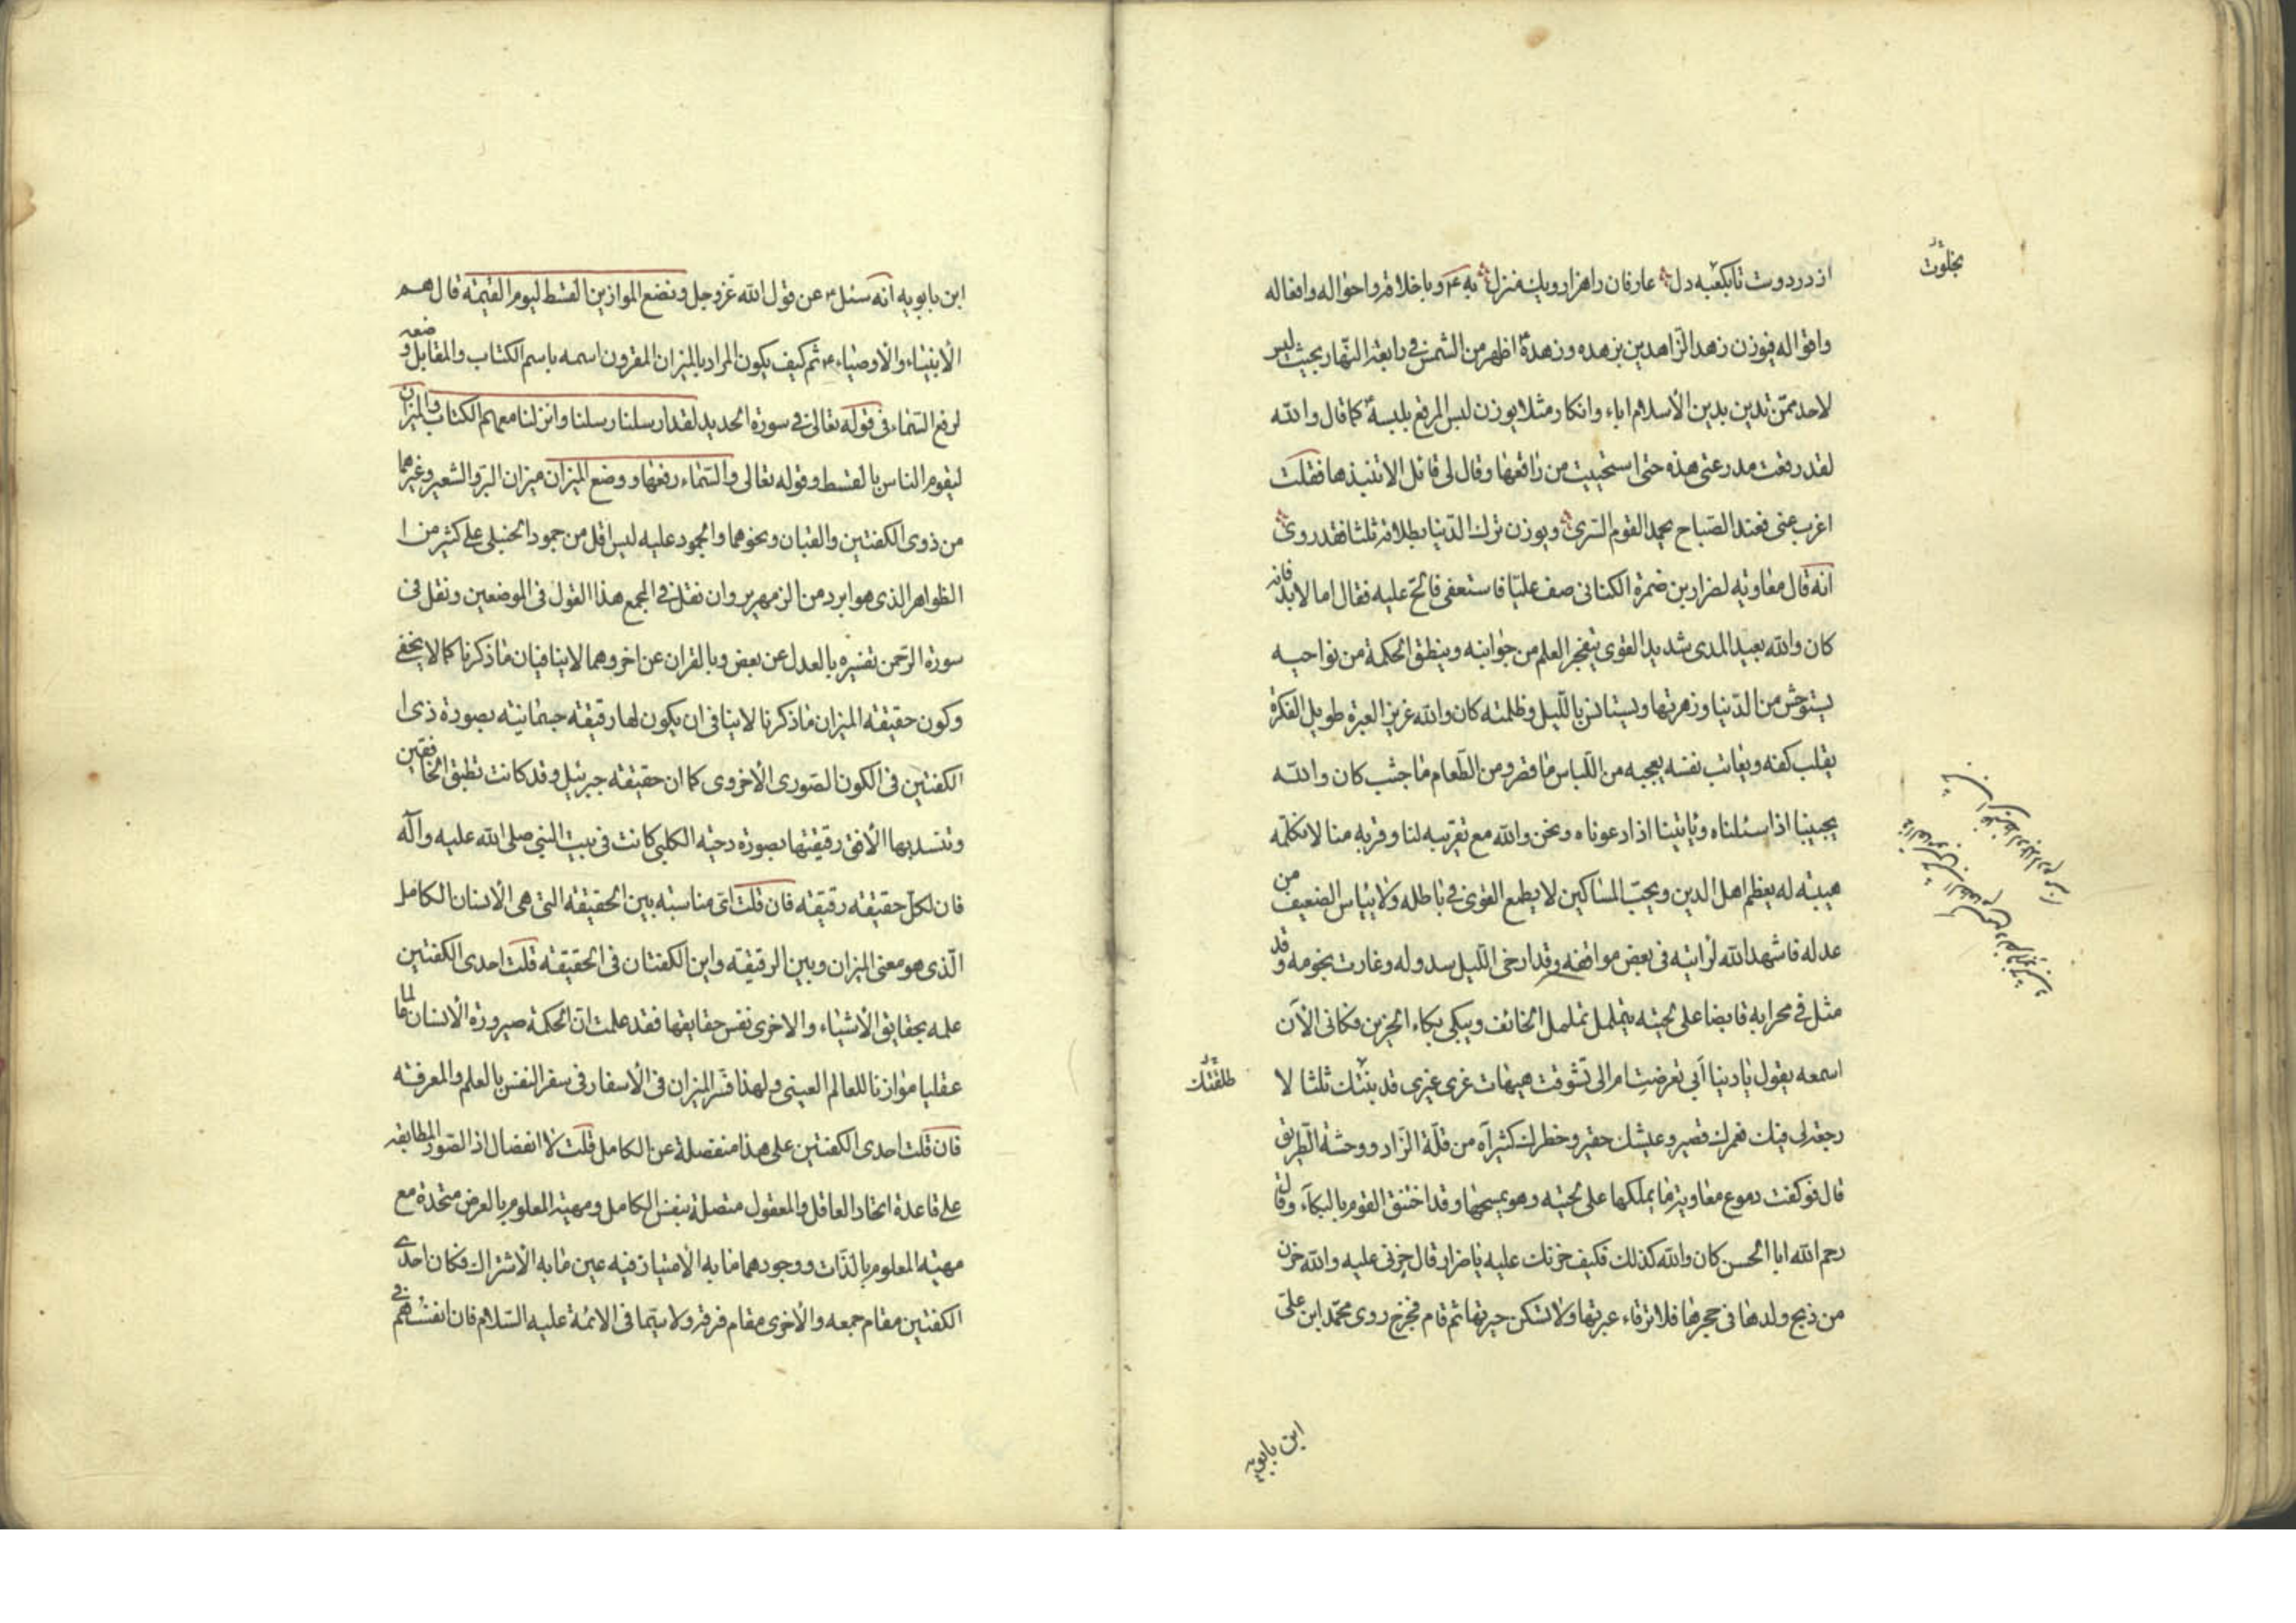 از در دوست تا بکعبه دل عارفان را هزار و یک منزل به ع و باخلاقه واحواله وافعاله
واقواله فیوزن زهد الزاهدین بزهده وزهده اظهر من الشمس فی رابعة النهار بحیث لیس
لاحد ممن تدین بدین الاسلام اباء وانکار مثلا یوزن لبس المرقع بلبسه کما قال والله
لقد رقعت مدرعتی هذه حتی استحییت من راقعها وقال لی قائل الا تنبذها فقلت
اغرب عنی فعند الصباح یحمد القوم السری ویوزن ترک الدنیا بطلاقه ثلثا فقد روی
انه قال معاویه لضرار بن ضمرة الکنانی صف علیا فاستعفی فالح علیه فقال اما لابد فانه
کان والله بعید المدی شدید القوی یتفجر العلم من جوانبه وینطق الحکمة من نواحیه
یستوحش من الدنیا وزهرتها ویستانس باللیل وظلمته کان والله غزیر العبرة طویل الفکرة
یقلب کفه ویعاتب نفسه یعجبه من اللباس ما قصر ومن الطعام ما جشب کان والله
یجیبنا اذا سئلناه ویاتینا اذا دعوناه ونحن والله مع تقریبه لنا وقربه منا لا نکلمه
هیبته له یعظم اهل الدین ویحب المساکین لا یطمع القوی فی باطله ولا ییاس الضعیف من
عدله فاشهد الله لرایته فی بعض مواقفه وقد ارخی اللیل سدوله وغارت نجومه وقد
مثل فی محرابه قابضا علی لحیته یتململ تململ الخائف ویبکی بکاء الحزین فکانی الآن
اسمعه یقول یا دنیا ابی تعرضت ام الی تشوقت هیهات غری غیری قد بتتک ثلثا لا
رجعة لی فیک فعمرک قصیر وعیشک حقیر وخطرک کثیر آه من قلة الزاد ووحشة الطریق
قال فوکفت دموع معاویة ما یملکها علی لحیته وهو یمسحها وقد اختنق القوم بالبکاء وقال
رحم الله ابا الحسن کان والله کذلک فکیف حزنک علیه یا ضرار قال حزنی علیه والله حزن
من ذبح ولدها فی حجرها فلا ترقاء عبرتها ولا تسکن حیرتها ثم قام فخرج روی محمد ابن علی
بخلوت
طلقتک
ابن بابویه
ابن بابویه انه سئل ع عن قول الله عز وجل ونضع الموازین القسط لیوم القیمة قال هم
الانبیاء والاوصیاء ع ثم کیف یکون المراد بالمیزان المقرون اسمه باسم الکتاب والمقابل وضعه
لرفع السماء فی قوله تعالی فی سورة الحدید لقد ارسلنا رسلنا وانزلنا معهم الکتاب والمیزان
لیقوم الناس بالقسط وقوله تعالی والسماء رفعها ووضع المیزان میزان البر والشعیر وغیرهما
من ذوی الکفتین والقبان ونحوهما والجمود علیه لیس اقل من جمود الحنبلی علی کثیر من ا
الظواهر الذی هو ابرد من الزمهریر وان نقل فی المجمع هذا القول فی الموضعین ونقل فی
سورة الرحمن تفسیره بالعدل عن بعض وبالقران عن اخر وهما لا ینافیان ما ذکرنا کما لا یخفی
وکون حقیقة المیزان ما ذکرنا لا ینافی ان یکون لها رقیقة جسمانیته بصورة ذی ا
الکفتین فی الکون الصوری الاخروی کما ان حقیقة جبرئیل وقد کانت تطبق الخافقین
وتنسد بها الافق رقیقتها بصورة دحیه الکلبی کانت فی بیت النبی صلی الله علیه وآله
فان لکل حقیقة رقیقة فان قلت ای مناسبة بین الحقیقة التی هی الانسان الکامل
الذی هو معنی المیزان وبین الرقیقة واین الکفتان فی الحقیقة قلت احدی الکفتین
علمه بحقایق الاشیاء والاخری نفس حقایقها فقد علمت ان الحکمة صیرورة الانسان عالما
عقلیا موازنا للعالم العینی ولهذا فسر المیزان فی الاسفار فی سفر النفس بالعلم والمعرفة
فان قلت احدی الکفتین علی هذا منفصلة عن الکامل قلت لا انفصال اذ الصور المطابقه
علی قاعدة اتحاد العاقل والمعقول متصلة بنفس الکامل ومهیة المعلوم بالعرض متحدة مع
مهیة المعلوم بالذات ووجودهما ما به الامتیاز فیه عین ما به الاشتراک فکان احدی
الکفتین مقام جمعه والاخری مقام فرقه ولا سیما فی الائمة علیه السلام فان انفسهم فی